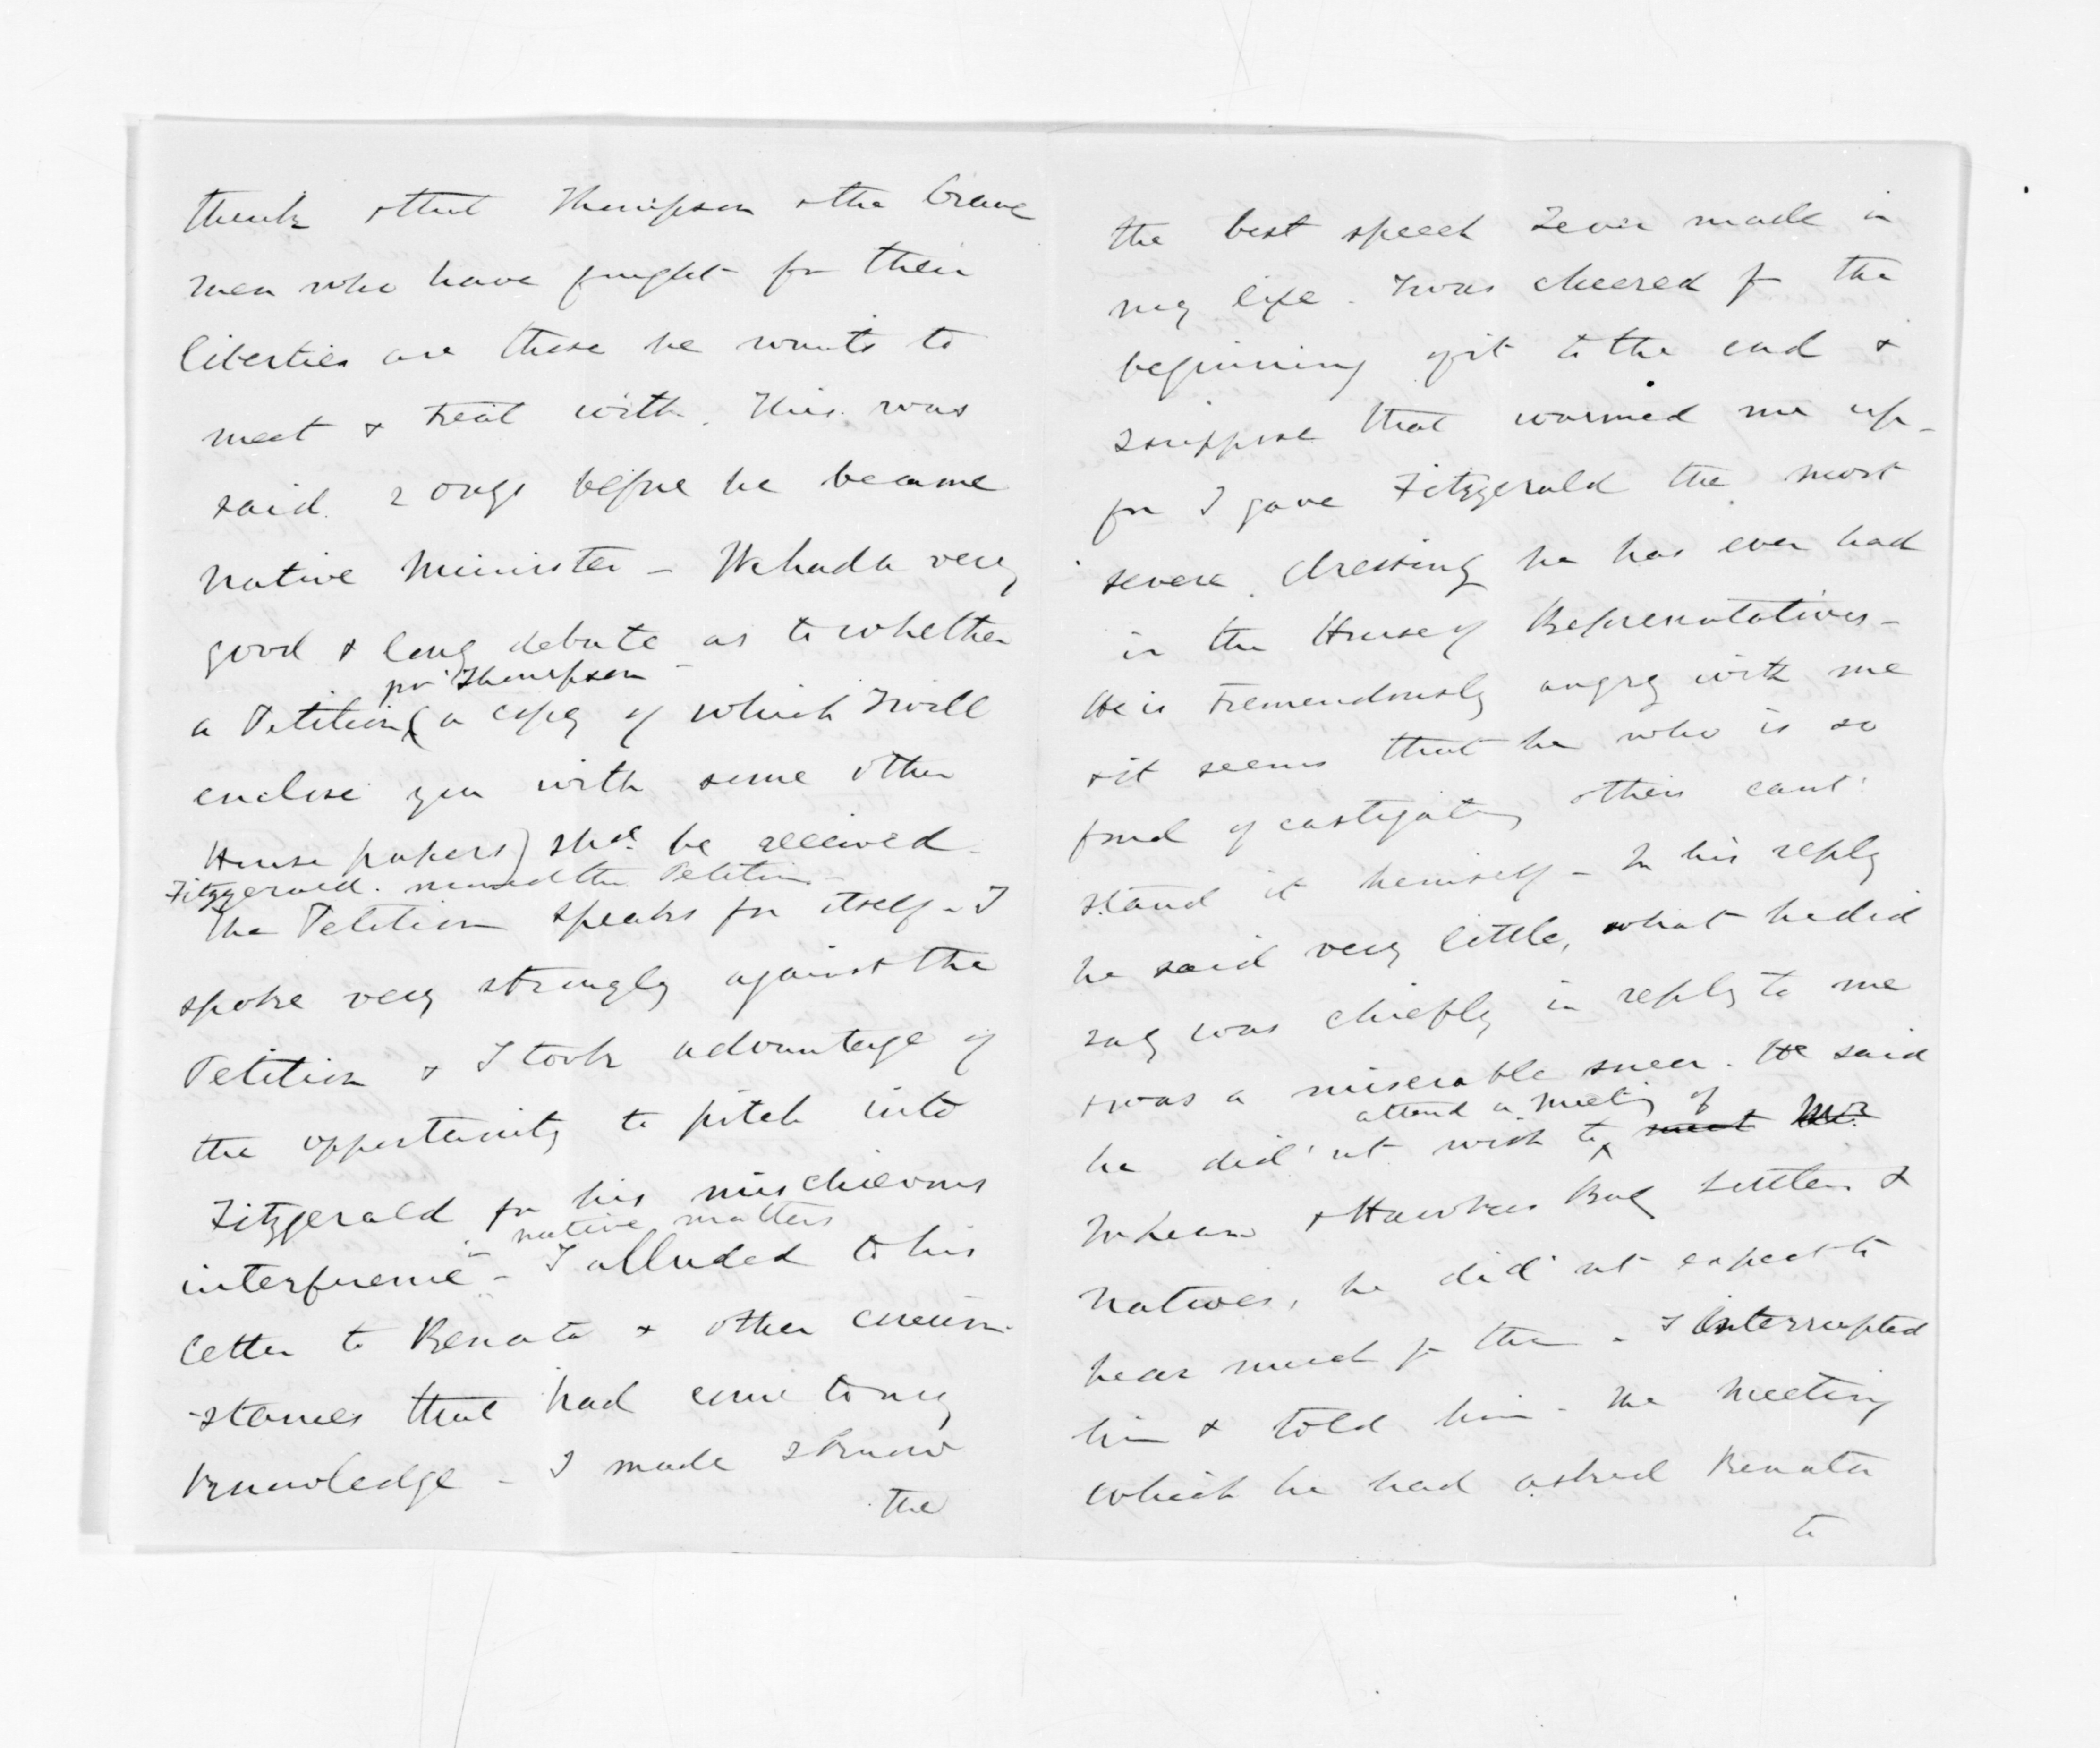 think & that Thompson & the brave
men who have fought for their
liberties are those he wants to
meet & treat with. This was
said 2 days before he became
Native Minister - We had a very
good & long debate as to whether
fm Thompson -
a Petition (a copy of which I will
enclose you with some other
House papers) shd. be received.
Fitzgerald moved the Petition -
The Petition speaks for itself - I
spoke very strongly against the
Petition & I took advantage of
the opportunity to pitch into
Fitzgerald for his mischievous
in native matters
interference - I alluded to his
letter to Renata & other circum-
stances that had come to my
knowledge - I made I know
the
the best speech I ever made in
my life. I was cheered fm the
beginning of it to the end &
I suppose that warmed me up -
for I gave Fitzgerald the most
severe dressing he has ever had
in the House of Representatives -
He is tremendously angry with me
& it seems that he who is so
fond of castigating others cant
stand it himself - In his reply
he said very little, what he did
say was chiefly in reply to me
& was a miserable sneer. He said
attend a meeting of
he did'nt wish to meet Mr.
McLean & Hawkes Bay Settlers &
Natives, he did'nt expect to
hear much fm them - I interrupted
him & told him - the Meeting
which he had asked Renata
to